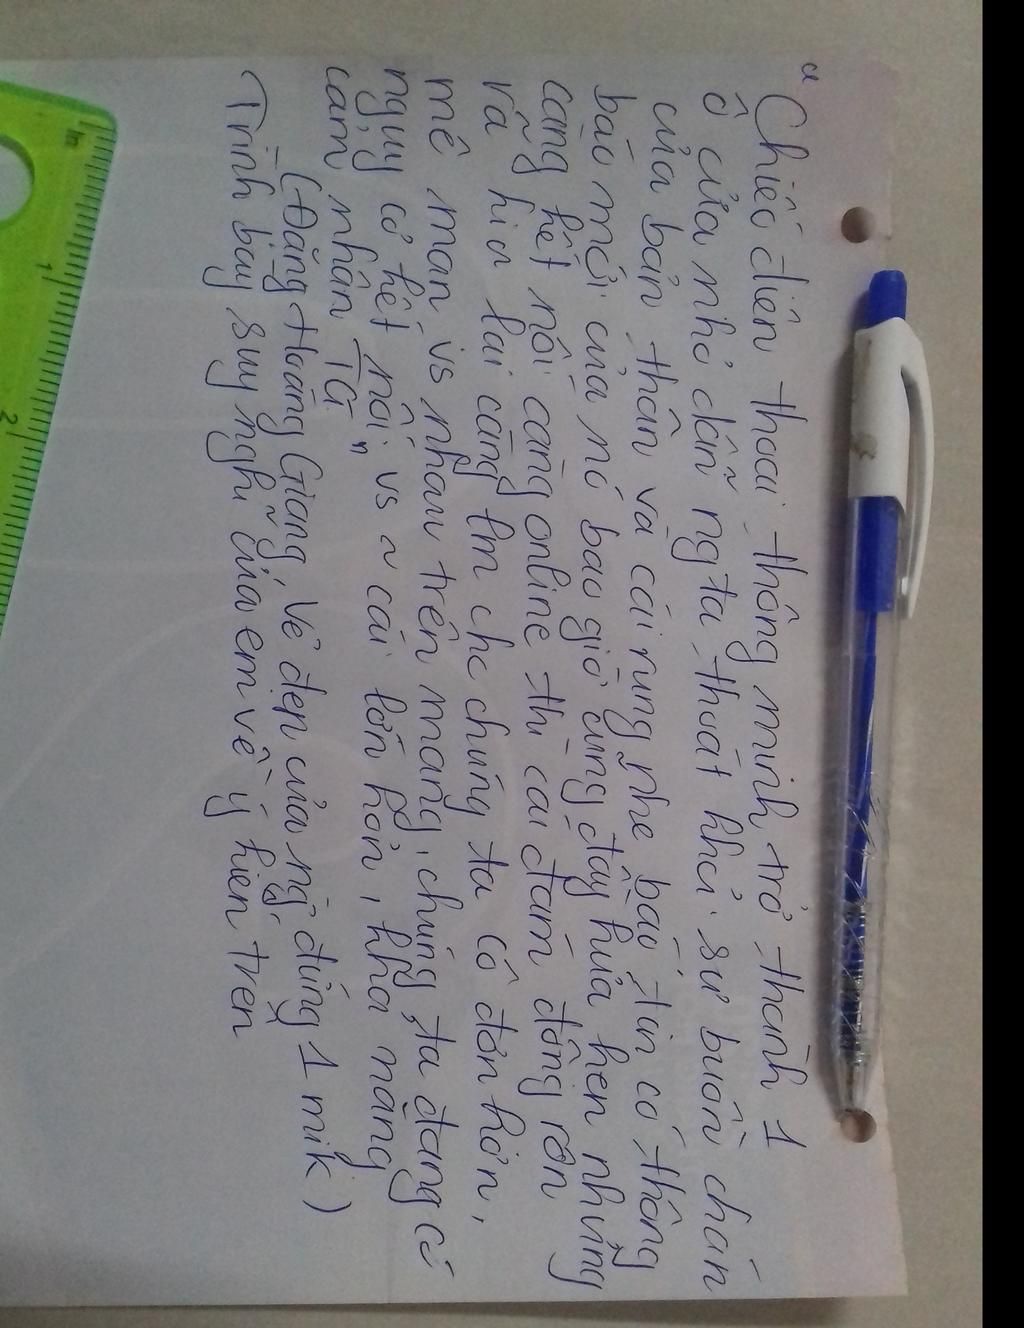 "Chiếc điện thoại thông minh trở thành 1
ô cửa nhỏ dẫn ng ta thoát khỏi sự buồn chán
của bản thân và cái rung nhẹ báo tin có thông
báo mới của nó bao giờ cũng đầy hứa hẹn nhưng
càng kết nối càng online thì cái đám đông rộn
rã hiện lại càng làm cho chúng ta cô đơn hơn,
mê man vs nhau trên mạng, chúng ta đang có
nguy cơ kết nối vs ~ cái lớn hơn, khả năng
cảm nhận Ta"
(Đặng Hoàng Giang, Vẻ đẹp của ng đứng 1 mik)
Trình bày suy nghĩ của em về ý kiến trên
In
1
2